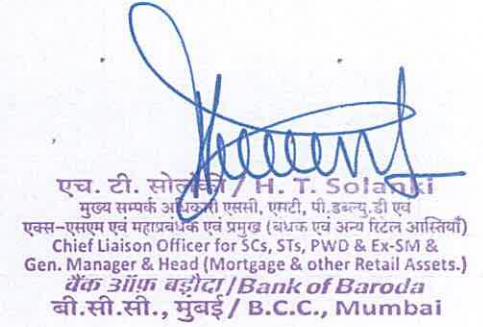 एच. टी. सोलंकी / H. T. Solanki
मुख्य सम्पर्क अधिकारी एससी, एसटी, पी.डबल्यु.डी एवं
एक्स-एसएम एवं महाप्रबंधक एवं प्रमुख (बंधक एवं अन्य रिटेल आस्तियाँ)
Chief Liaison Officer for SCs, STs, PWD & Ex-SM &
Gen. Manager & Head (Mortgage & other Retail Assets.)
बैंक ऑफ़ बड़ौदा / Bank of Baroda
बी.सी.सी., मुंबई / B.C.C., Mumbai